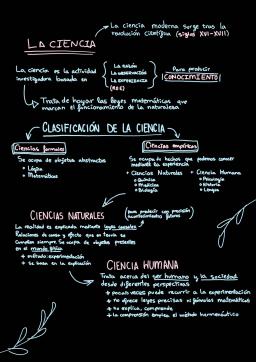 La ciencia moderna surge tras la
revolución científica (siglos XVI-XVII)
LA CIENCIA
La ciencia es la actividad
investigadora basada en
LA RAZÓN
LA OBSERVACIÓN
LA EXPERIENCIA
Para producir
CONOCIMIENTO
Trata de hayar las leyes matemáticas que
marcan el funcionamiento de la naturaleza
CLASIFICACIÓN DE LA CIENCIA
Ciencias formales
Se ocupa de objetos abstractos
• Lógica
• Matemáticas
Ciencias empíricas
Se ocupa de hechos que podemos conocer
mediante la experiencia
• Ciencias Naturales
• Química
• Medicina
• Biología
• Ciencias Humana
• Psicología
• Historia
• Lengua
CIENCIAS NATURALES
(para predecir con precisión
acontecimientos futuros)
La realidad es explicada mediante leyes causales
Relaciones de causa y efecto que en teoría se
cumplen siempre. Se ocupa de objetos presentes
en el mundo físico
+ método: experimentación
+ se basa en la explicación
CIENCIA HUMANA
Trata acerca del ser humano y la sociedad
desde diferentes perspectivas
+ pocas veces puede recurrir a la experimentación
+ no ofrece leyes precisas ni fórmulas matemáticas
+ no explica, comprende
+ la comprensión emplea el método hermenéutico